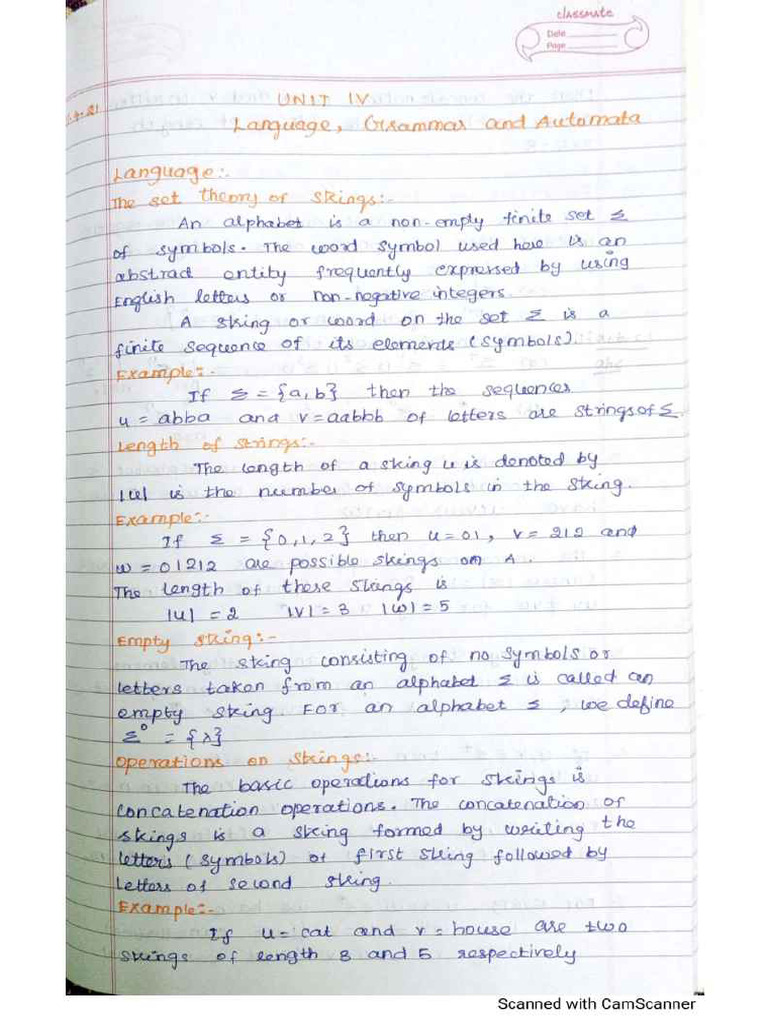 classmate
Date
Page
.4.21
UNIT IV
Language, Grammar and Automata
Language:-
The set theory of strings:-
An alphabet is a non-empty finite set Σ
of symbols. The word symbol used here is an
abstract entity frequently expressed by using
English letters or non-negative integers.
A string or word on the set Σ is a
finite sequence of its elements (symbols).
Example:-
If Σ = {a,b} then the sequences
u = abba and v = aabbb of letters are strings of Σ.
Length of strings:-
The length of a string u is denoted by
|u| is the number of symbols in the string.
Example:-
If Σ = {0,1,2} then u = 01, v = 212 and
w = 01212 are possible strings on A.
The length of these strings is
|u| = 2 |v| = 3 |w| = 5
Empty string:-
The string consisting of no symbols or
letters taken from an alphabet Σ is called an
empty string For an alphabet Σ, we define
Σ⁰ = {λ}
Operations on strings:-
The basic operations for strings is
concatenation operations. The concatenation of
strings is a string formed by writing the
letters (symbols) of first string followed by
letters of second string.
Example:-
If u = cat and v = house are two
strings of length 3 and 5 respectively
Scanned with CamScanner